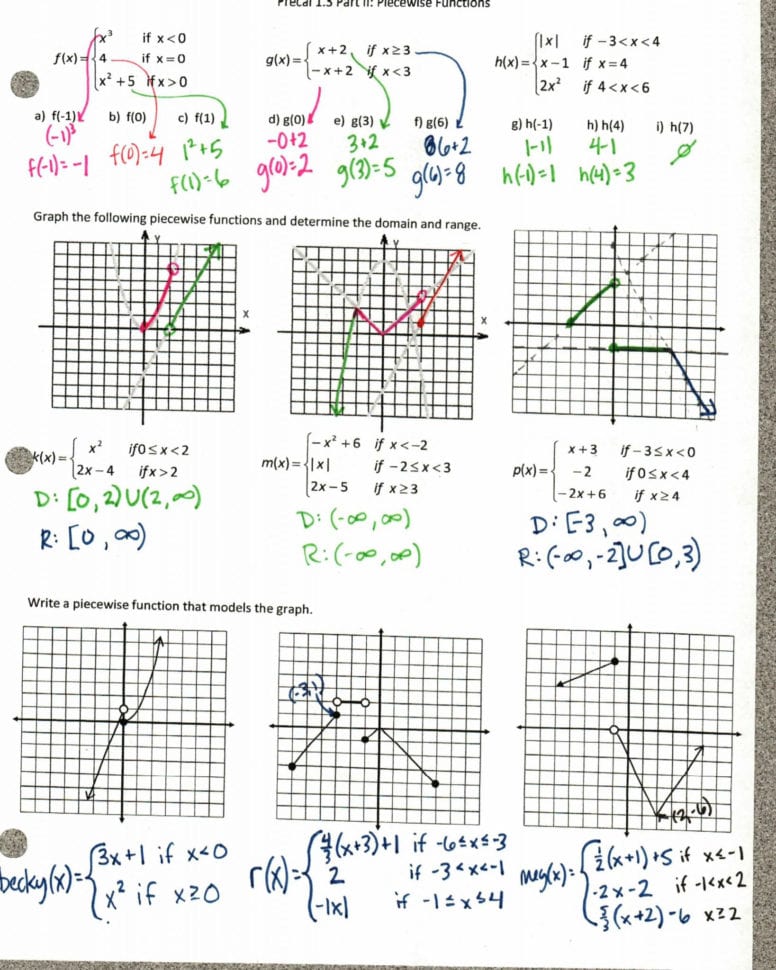 Precal 1.3 Part II: Piecewise Functions
f(x)= { x³ if x<0
4 if x=0
x²+5 if x>0
g(x)= { x+2 if x≥3
−x+2 if x<3
h(x)= { |x| if −3<x<4
x−1 if x=4
2x² if 4<x<6
a) f(-1) b) f(0) c) f(1) d) g(0) e) g(3) f) g(6) g) h(-1) h) h(4) i) h(7)
(-1)³ 1²+5 -0+2 3+2 6+2 |-1| 4-1 ∅
f(-1)=-1 f(0)=4 f(1)=6 g(0)=2 g(3)=5 g(6)=8 h(-1)=1 h(4)=3
Graph the following piecewise functions and determine the domain and range.
y y
x x
k(x)= { x² if 0≤x<2
2x−4 if x>2
D: [0,2)∪(2,∞)
R: [0,∞)
m(x)= { −x²+6 if x<−2
|x| if −2≤x<3
2x−5 if x≥3
D: (-∞,∞)
R: (-∞,∞)
p(x)= { x+3 if −3≤x<0
−2 if 0≤x<4
−2x+6 if x≥4
D: [-3,∞)
R: (-∞,-2]∪[0,3)
Write a piecewise function that models the graph.
(-3,1)
(2,-6)
becky(x)= { 3x+1 if x<0
x² if x≥0
r(x)= { 4/3(x+3)+1 if -6≤x≤-3
2 if -3<x<-1
-|x| if -1≤x≤4
meg(x)= { 1/2(x+1)+5 if x≤-1
-2x-2 if -1<x<2
5/3(x+2)-6 x≥2